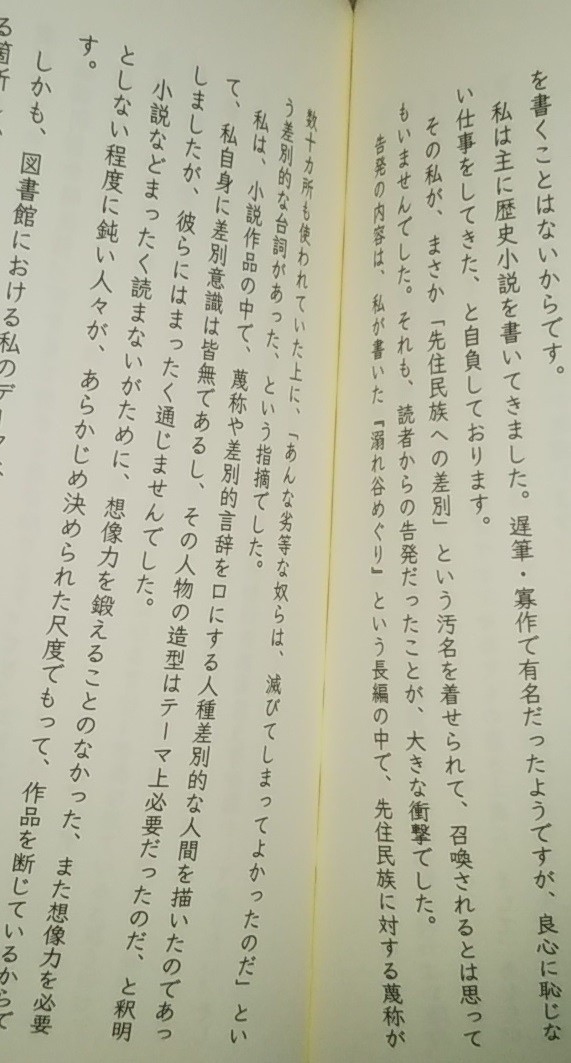 を書くことはないからです。
私は主に歴史小説を書いてきました。遅筆・寡作で有名だったようですが、良心に恥じな
い仕事をしてきた、と自負しております。
その私が、まさか「先住民族への差別」という汚名を着せられて、召喚されるとは思って
もいませんでした。それも、読者からの告発だったことが、大きな衝撃でした。
告発の内容は、私が書いた『溺れ谷めぐり』という長編の中で、先住民族に対する蔑称が
数十カ所も使われていた上に、「あんな劣等な奴らは、滅びてしまってよかったのだ」とい
う差別的な台詞があった、という指摘でした。
私は、小説作品の中で、蔑称や差別的言辞を口にする人種差別的な人間を描いたのであっ
て、私自身に差別意識は皆無であるし、その人物の造型はテーマ上必要だったのだ、と釈明
しましたが、彼らにはまったく通じませんでした。
小説などまったく読まないがために、想像力を鍛えることのなかった、また想像力を必要
としない程度に鈍い人々が、あらかじめ決められた尺度でもって、作品を断じているからで
す。
しかも、図書館における私のデータ